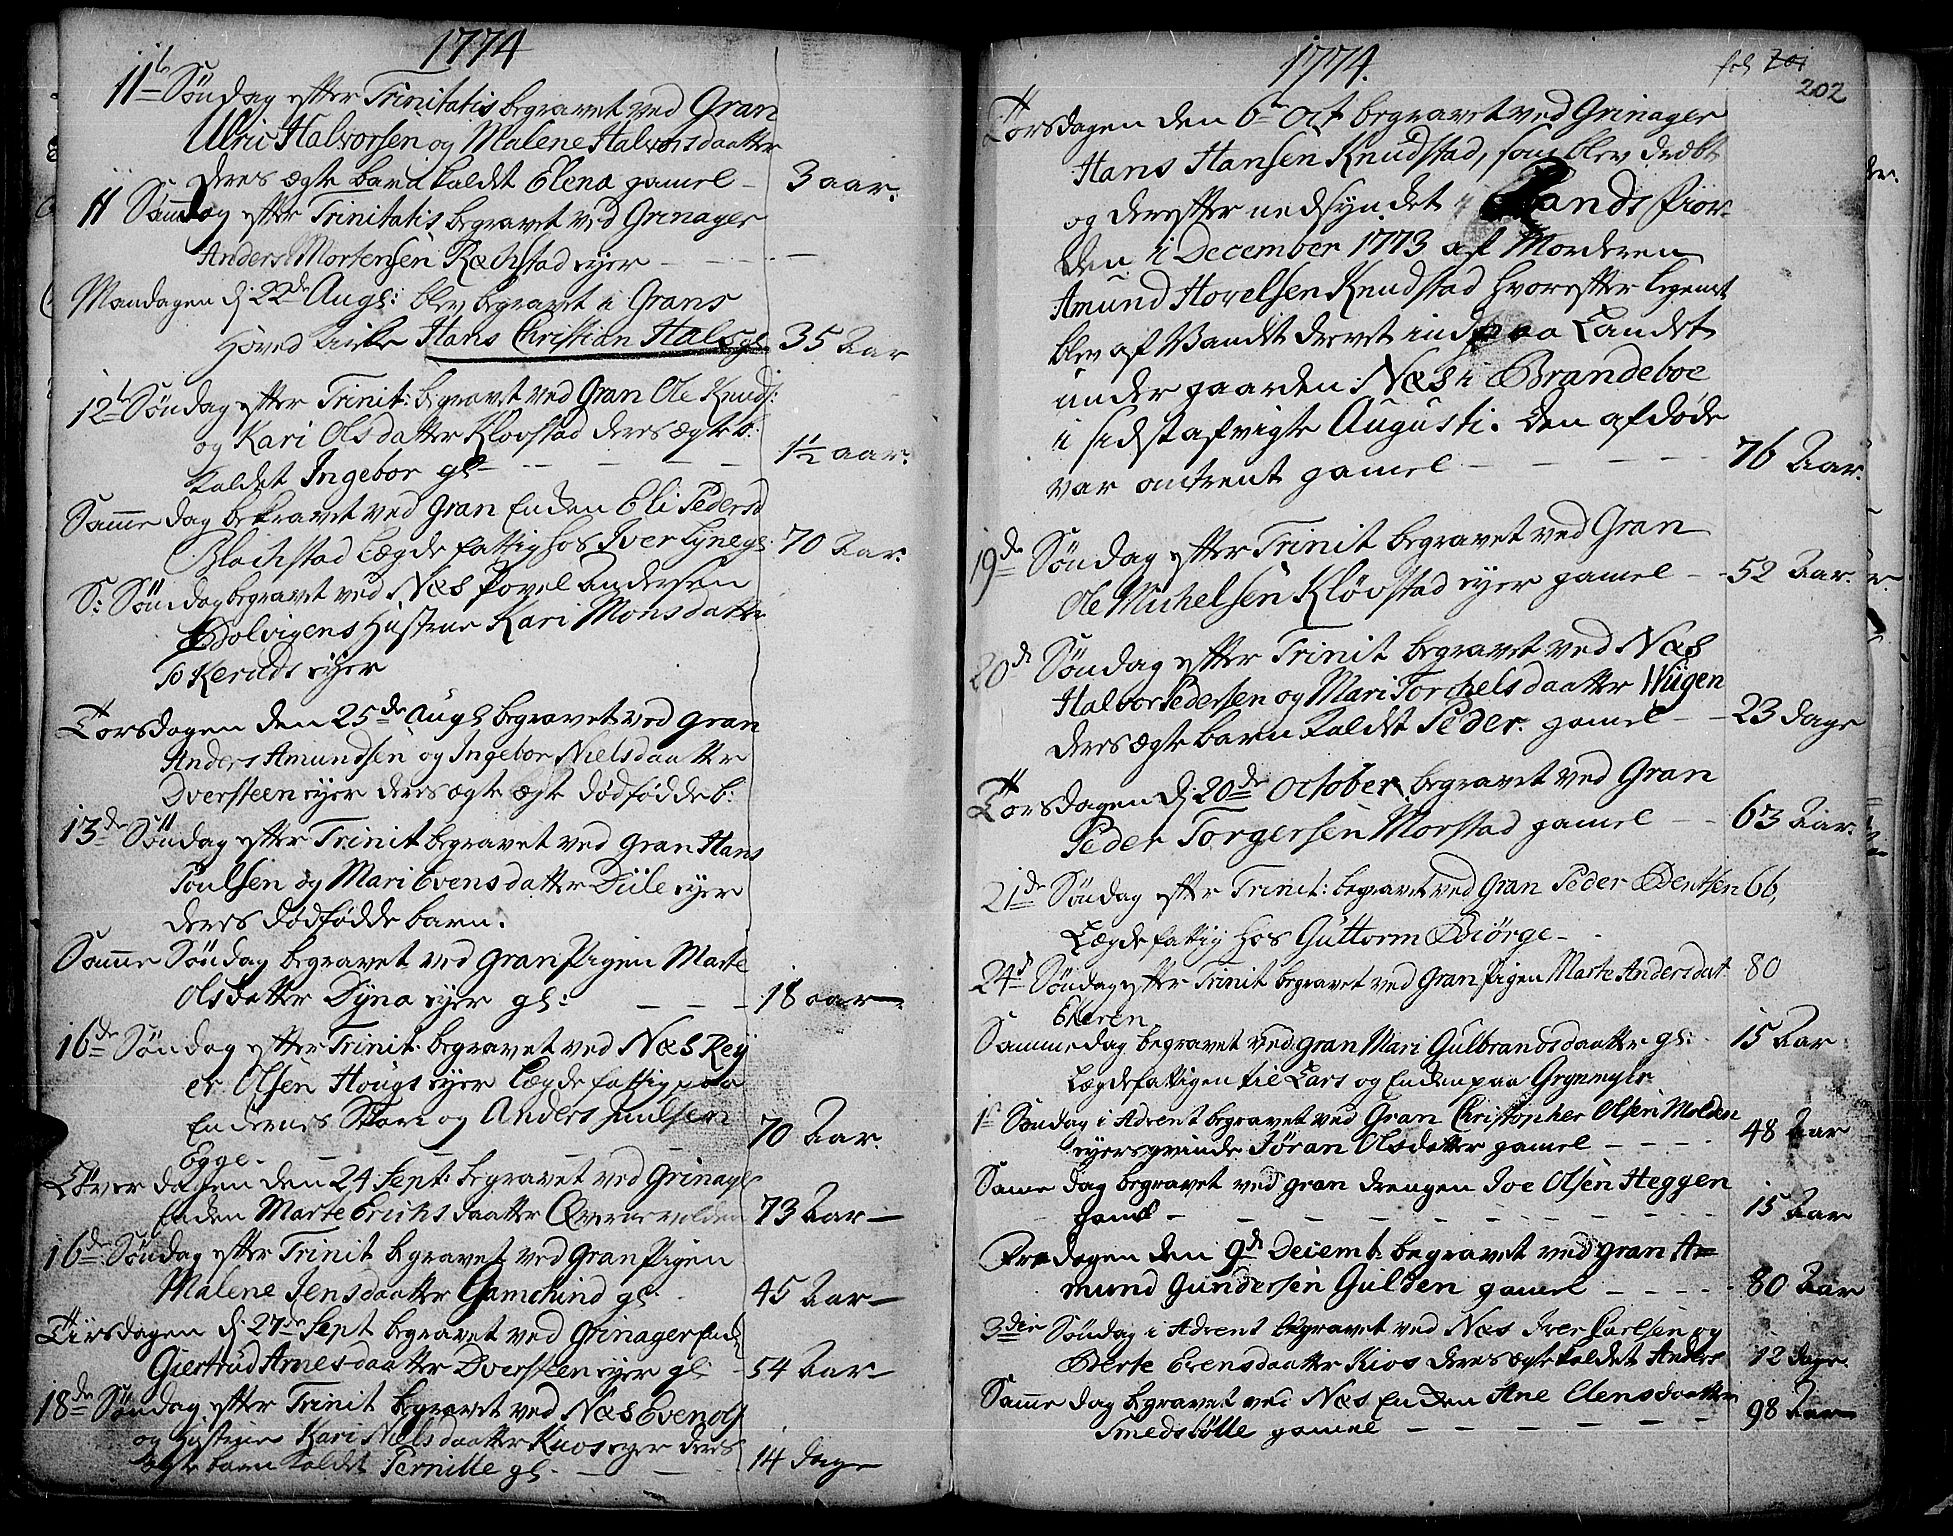 1774
11te Søndag efter Trinitatis begravet ved Gran
Ulric Halvorsen og Malene Halvorsdaatter
deres ægte barn kaldet Elena gamel - 3 aar.
11 Søndag efter Trinitatis begravet ved Grinager
Anders Mortensen Rachstad eyer - - -
Mandagen d: 22de Augs: blev begravet i Grans
Hoved Kirke Hans Christian Hals gl 35 Aar
12te Søndag efter Trinit: begravet ved Gran Ole Knuds:
og Kari Olsdatter Kløvstad deres ægte b:
kaldet Ingebor gl - - - - 1½ aar.
Samme dag begravet ved Gran Enken Eli Pedersd
Blachstad Lægdefattig hos Iver Lynegs 70 Aar.
S: Søndag begravet ved Næs Povel Andersen
Bolvigens Hustrue Kari Monsdatter
Tokeruds eyer
Torsdagen den 25de Augs begravet ved Gran
Anders Amundsen og Ingebor Nielsdaatter
Dversteen eyer deres ægte ægte dødfødde b:
13de Søndag efter Trinit begravet ved Gran Hans
Poulsen og Mari Evensdatter Diile eyer
deres dødfødde barn.
Samme Søndag begravet ved Gran Pigen Marte
Olsdatter Dyna eyer gl: - - - 18 aar
16de Søndag efter Trinit. begravet ved Næs Rey
er Olsen Hougs eyer Lægdefattig paa
Endernes Store og Anders Paulsen
Egge - - - 70 Aar.
Løverdagen den 24 Sept: begravet ved Grinager
Enken Marte Erichsdaatter 73 Aar
16de Søndag efter Trinit begravet ved Gran Pigen
Malene Jensdaatter Gamchind gl: 45 Aar
Tiirsdagen d: 27de Sept begravet ved Grinager Enk
Giertrud Arnesdaatter Dversteen eyer gl - 54 Aar
18de Søndag efter Trinit begravet ved Næs Even Ols
og Hustrue Kari Nielsdaatter Kuos eyer deres
ægte barn kaldet Pernille gl. - - 14 dage
1774.
fol 201
202
Torsdagen den 6te Oct begravet ved Grinager
Hans Hansen Knudstad, som blev dræbt
og derefter nedsyncket i Rands fior-
den i December 1773 af Morderen
Amund Hovelsen Knudstad hvorefter legemet
blev af Vandet drevet ind paa Landet
under gaarden Næs i Brandeboe
i sidst afvigte Augusti. Den afdøde
var omtrent gamel - - - - 76 Aar.
19de Søndag efter Trinit begravet ved Gran
Ole Michelsen Kløvstad eyer gamel - - 52 Aar.
20de Søndag efter Trinit begravet ved Næs
Halvor Pedersen og Mari Torchelsdaatter Wiigen
deres ægte barn kaldet Peder. gamel - - 23 dage
Torsdagen d: 20de October begravet ved Gran
Peder Torgersen Morstad gamel - - 63 Aar.
21de Søndag efter Trinit: begravet ved Gran Peder Bentsen 66,
Lægdefattig hos Guttorm Biørge -
24d Søndag efter Trinit begravet ved Gran Pigen Marte Andersdat 80
Ekeren
Samme dag begravet ved Gran Mari Gulbrandsdaatter gl: 15 Aar
Lægdefattigen til Lars og Enken paa Grynmyhr
1te Søndag i Advent begravet ved Gran Christopher Olsen Molden
eyers qvinde Jøran Olsdatter gamel - - - - 48 Aar
Same dag begravet ved gran drengen Joe Olsen Heggen
gamel - - - - - - - 15 Aar
Fredagen den 9de Decemb. begravet ved gran A=
mund Gundersen Gulden gamel - - - - 80 Aar
3die Søndag i Advent begravet ved Næs Iver Carlsen og
Berte Evensdaatter Kios deres ægte kaldet Anders 12 dage.
Samme dag begravet ved Næs Enken Ane Elensdaatter
Smedsbølle gamel - - - - - 98 Aar